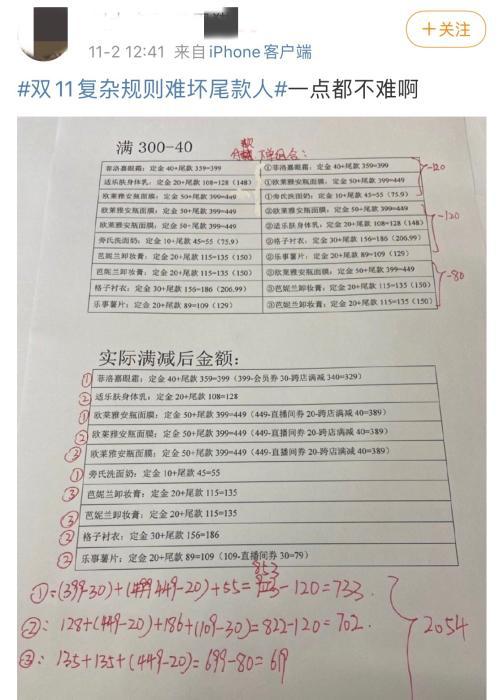 +关注
11-2 12:41 来自 iPhone客户端
#双11复杂规则难坏尾款人#一点都不难啊
满 300-40
下单组合:
菲洛嘉眼霜:定金 40+尾款 359=399 ①菲洛嘉眼霜:定金 40+尾款 359=399
适乐肤身体乳:定金 20+尾款 108=128(148) ①欧莱雅安瓶面膜:定金 50+尾款 399=449
欧莱雅安瓶面膜:定金 50+尾款 399=449 ①旁氏洗面奶:定金 10+尾款 45=55(75.9)
-120
欧莱雅安瓶面膜:定金 50+尾款 399=449 ②欧莱雅安瓶面膜:定金 50+尾款 399=449
欧莱雅安瓶面膜:定金 50+尾款 399=449 ②适乐肤身体乳:定金 20+尾款 108=128(148)
旁氏洗面奶:定金 10+尾款 45=55(75.9) ②格子衬衣:定金 30+尾款 156=186(206.99)
芭妮兰卸妆膏:定金 20+尾款 115=135(150) ②乐事薯片:定金 20+尾款 89=109(129)
-120
芭妮兰卸妆膏:定金 20+尾款 115=135(150) ③欧莱雅安瓶面膜:定金 50+尾款 399=449
格子衬衣:定金 30+尾款 156=186(206.99) ③芭妮兰卸妆膏:定金 20+尾款 115=135(150)
乐事薯片:定金 20+尾款 89=109(129) ③芭妮兰卸妆膏:定金 20+尾款 115=135(150)
-80
实际满减后金额:
① 菲洛嘉眼霜:定金 40+尾款 359=399(399-会员券 30-跨店满减 340=329)
② 适乐肤身体乳:定金 20+尾款 108=128
① 欧莱雅安瓶面膜:定金 50+尾款 399=449(449-直播间券 20-跨店满减 40=389)
② 欧莱雅安瓶面膜:定金 50+尾款 399=449(449-直播间券 20-跨店满减 40=389)
③ 欧莱雅安瓶面膜:定金 50+尾款 399=449(449-直播间券 20-跨店满减 40=389)
① 旁氏洗面奶:定金 10+尾款 45=55
③ 芭妮兰卸妆膏:定金 20+尾款 115=135
③ 芭妮兰卸妆膏:定金 20+尾款 115=135
② 格子衬衣:定金 30+尾款 156=186
② 乐事薯片:定金 20+尾款 89=109(109-直播间券 30=79)
①=(399-30)+(449-20)+55=853-120=733
②:128+(449-20)+186+(109-30)=822-120=702
2054
③:135+135+(449-20)=699-80=619